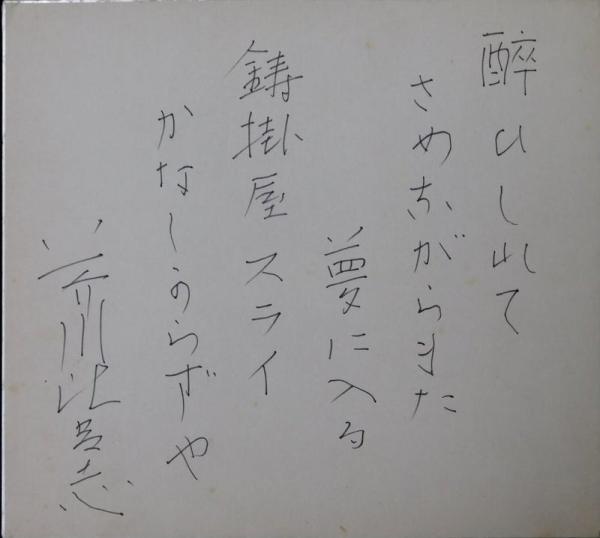 醉ひしれて
さめながらまた
夢に入る
鋳掛屋スライ
かなしからずや
芥川比呂志